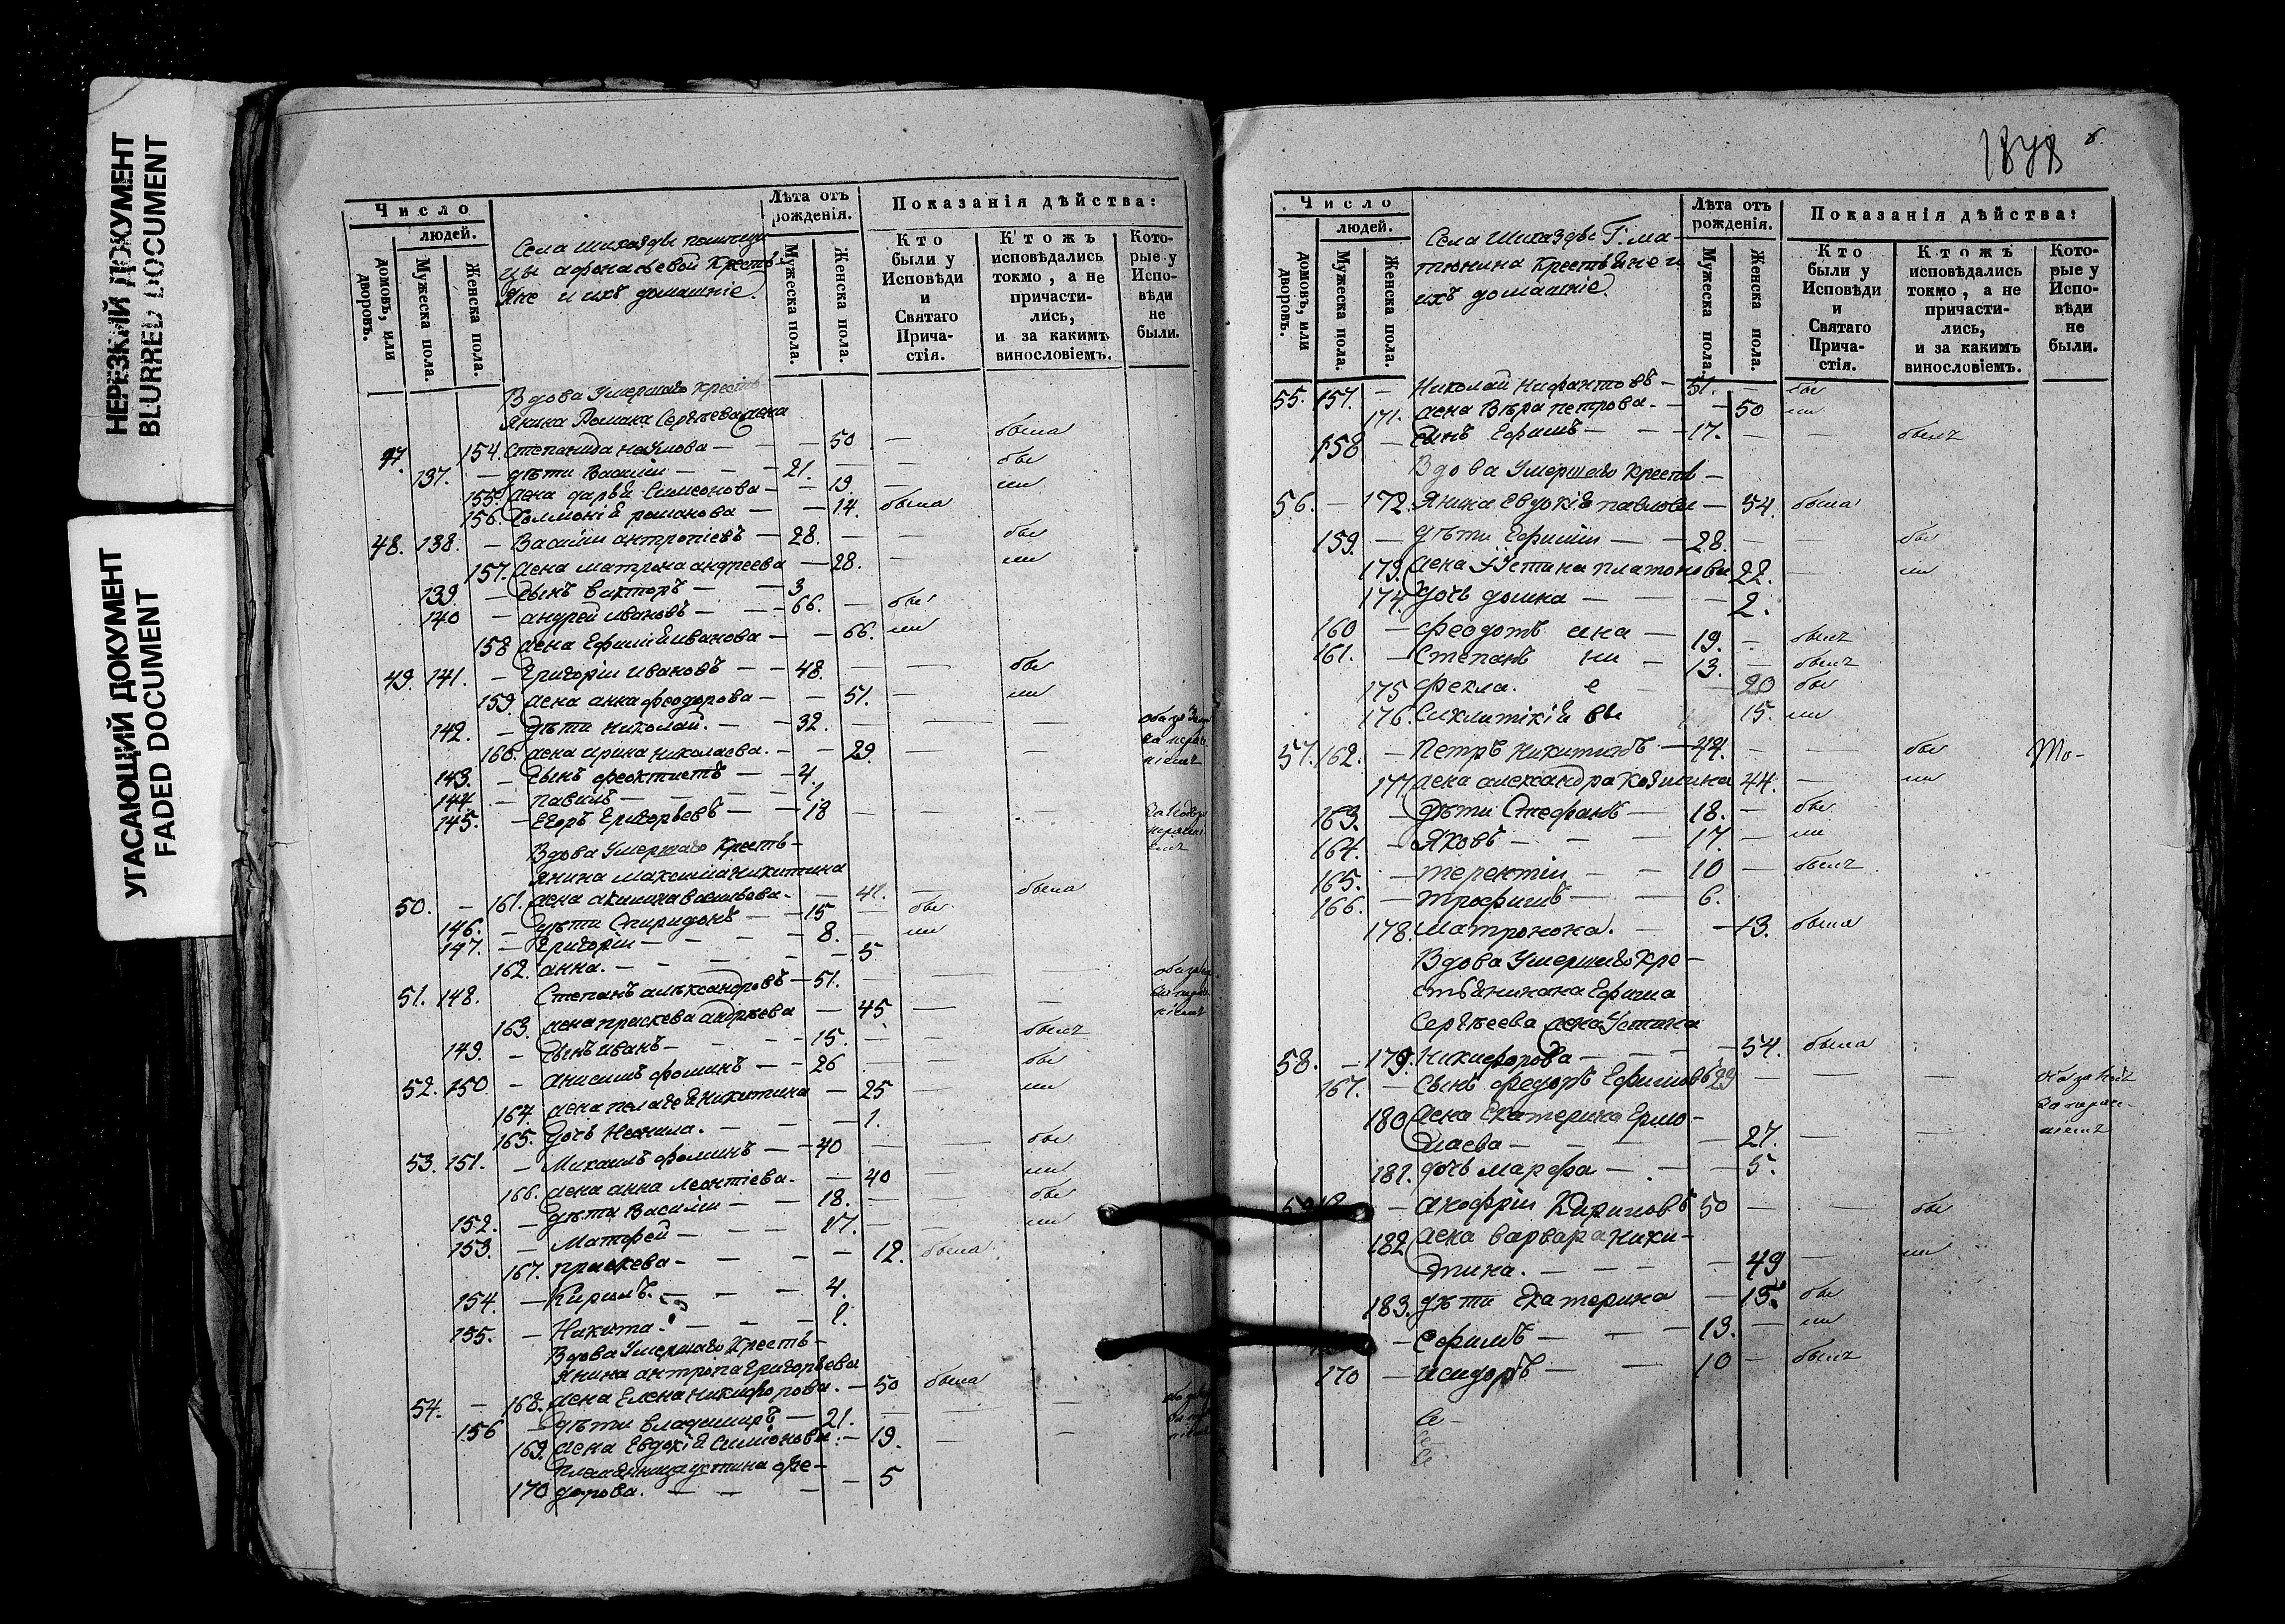 НЕРЕЗКИЙ ДОКУМЕНТ
BLURRED DOCUMENT
УГАСАЮЩИЙ ДОКУМЕНТ
FADED DOCUMENT
Число
людей.
домовъ, или дворовъ.
Мужеска пола.
Женска пола.
Села
крестья
яне и ихъ домашніе.
Лѣта отъ рожденія.
Мужеска пола.
Женска пола.
Показанія дѣйства:
Кто были у Исповѣди и Святаго Причастія.
Ктожъ исповѣдались токмо, а не причастились, и за какимъ винословіемъ.
Которые у Исповѣди не были.
Вдова Умершаго Кресть
янина Романа Сергѣева жена
154. Степанида Наумова — — 50 — была
137. — дѣти Василій — — 21. — — бы
155. жена дарья Симеонова — — 19. — ли
156. романова — — 14. была
48. 138. — Василій антропіевъ — 28. — — бы
157. жена матрона андреева — 28. — ли
139. — сынъ викторъ — — 3.
140 — андрей ивановъ — — 66. — бы
158 жена Ефимія иванова — — 66. ли
49. 141. — Григорій ивановъ — — 48. — — бы
159. жена анна феодорова — — 51. — ли
142. — дѣти николай. — — 32. — — —
160. жена ирина николаева. — — 29. — —
143. — сынъ феоктистъ — — 4.
144 — павилъ — — — 1.
145. — Егоръ Григорьевъ — — 18 — —
Вдова Умершаго Кресть-
янина максима никитина
50. — 161. жена акилина васильева. — 41. — была
146. — дѣти Спиридонъ — — 15 — бы
147. — Григорій — — — 8. — ли
162. анна. — — — — 5
51. 148. Степанъ александровъ — 51. — —
163. жена праскева андрѣева — 45 — —
149. — сынъ иванъ — — — 15. — — былъ
52. 150 — анисимъ фоминъ — — 26 — бы
164. жена пелагея никитина — 25 — ли
165. дочь Неонила. — — — 1.
53. 151. — Михаилъ фоминъ — — 40 — — бы
166. жена анна леонтіева. — 40 — ли
152. — дѣти Василій — — 18. — — бы
153. — Матфей — — — 17. — — ли
167. праскева — — — — 12. была
154. — Кирилъ. — — — 4.
155. — Никита. — — — 1.
Вдова Умершаго Кресть-
янина антропа григорьева
54. — 168. жена Елена Никифорова. — 50 была
156 — дѣти владимиръ — 21. — — —
169. жена Евдокія Симіонова — 19. — —
племянница устина фе-
170 дорова. — — — — 5
1848
Число
людей.
домовъ, или дворовъ.
Мужеска пола.
Женска пола.
Села
Г: ма-
тюнина Крестьяне и
ихъ домашніе.
Лѣта отъ рожденія.
Мужеска пола.
Женска пола.
Показанія дѣйства:
Кто были у Исповѣди и Святаго Причастія.
Ктожъ исповѣдались токмо, а не причастились, и за какимъ винословіемъ.
Которые у Исповѣди не были.
55. 157. — Николай Нифантовъ — 51. — бы
171. жена Вѣра петрова. — — 50 ли
158 — сынъ Ефимъ — — — 17. — — былъ
Вдова Умершаго Кресть —
56. — 172. янина Евдокія павлова — 54. была
159. — дѣти Ефимій — — 28. — — бы
173. жена Устина платонова 22. — ли
174. дочь домна — — — 2.
160 — феодотъ — 19. — былъ
161. — Степанъ — 13. — былъ
175 фекла. — — 20 бы
176. 15. ли
57. 162. — Петръ Никитинъ. — 44. — — бы
177 жена александра 44. — ли
163. — дѣти Стефанъ — 18. — бы
164. — Яковъ — — — 17. — ли
165. — терентій — — 10 — былъ
166. — трофимъ — — 6.
178. матрона. — — 13. была
Вдова Умершаго Кре-
стьянина Ефима
Сергѣева жена Устина
58. — 179. Никифорова — — — 54. была
167. — сынъ федоръ Ефимовъ 29 — — —
180 жена Екатерина Ермо-
лаева — — — — 27. — —
181. дочь марфа — — — 5.
— анофрій Кириловъ 50 — — бы
182 жена варвара Ники-
тина. — — — — 49 — ли
183. дѣти Екатерина — 15. бы
— Ефимъ — — — 13. — ли
170 — исидоръ — — 10 — былъ